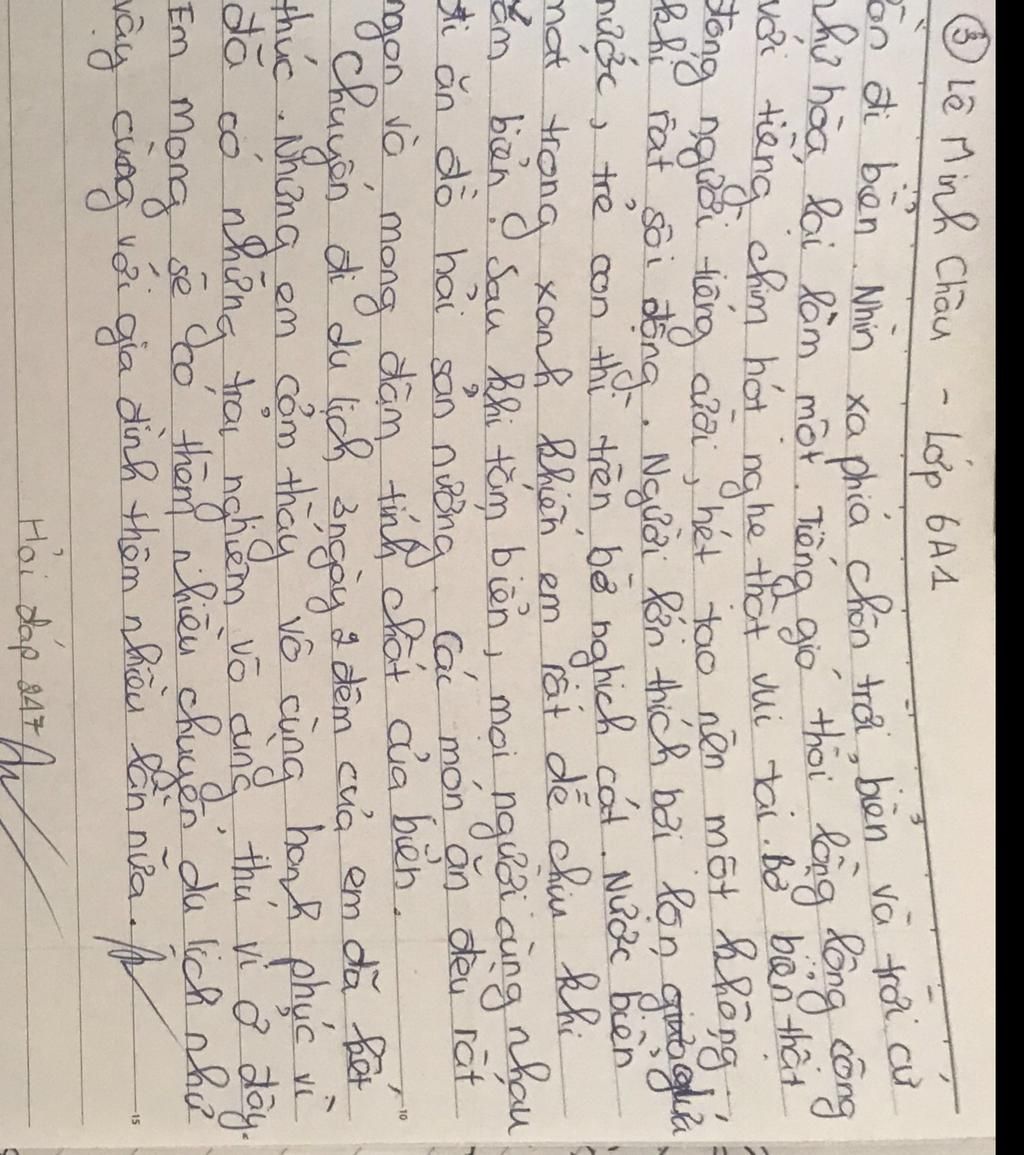 ③ Lê Minh Châu - Lớp 6A1
đi biển. Nhìn xa phía chân trời, biển và trời cứ
như hòa lại làm một. Tiếng gió thổi lồng lộng cộng
với tiếng chim hót nghe thật vui tai. Bờ biển thật
đông người tiếng cười, hét tạo nên một không
khí rất sôi động. Người lớn thích bơi lộn giữa
nước, trẻ con thì trên bờ nghịch cát. Nước biển
mát trong xanh khiến em rất dễ chịu khi
tắm biển. Sau khi tắm biển, mọi người cùng nhau
đi ăn đồ hải sản nướng. Các món ăn đều rất
ngon và mang đậm tính chất của biển.
Chuyến đi du lịch 3 ngày 2 đêm của em đã kết
thúc. Nhưng em cảm thấy vô cùng hạnh phúc vì
đã có những trải nghiệm vô cùng thú vị ở đây.
Em mong sẽ có thêm nhiều chuyến du lịch như
vậy cùng với gia đình thêm nhiều lần nữa.
Hỏi đáp 247
10
15